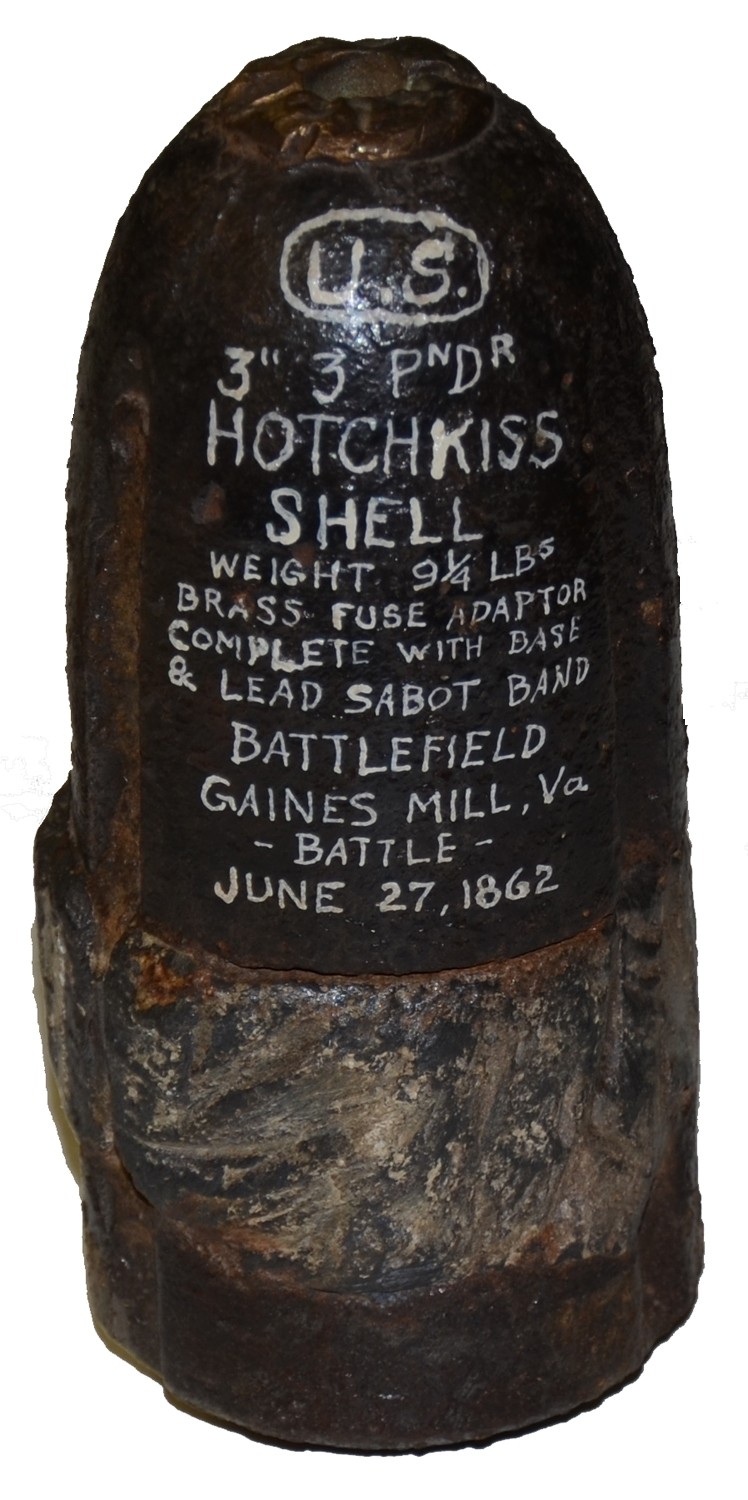 U.S.
3" 3 PNDR
HOTCHKISS
SHELL
WEIGHT 9¼ LBS
BRASS FUSE ADAPTOR
COMPLETE WITH BASE
& LEAD SABOT BAND
BATTLEFIELD
GAINES MILL, Va
- BATTLE -
JUNE 27, 1862